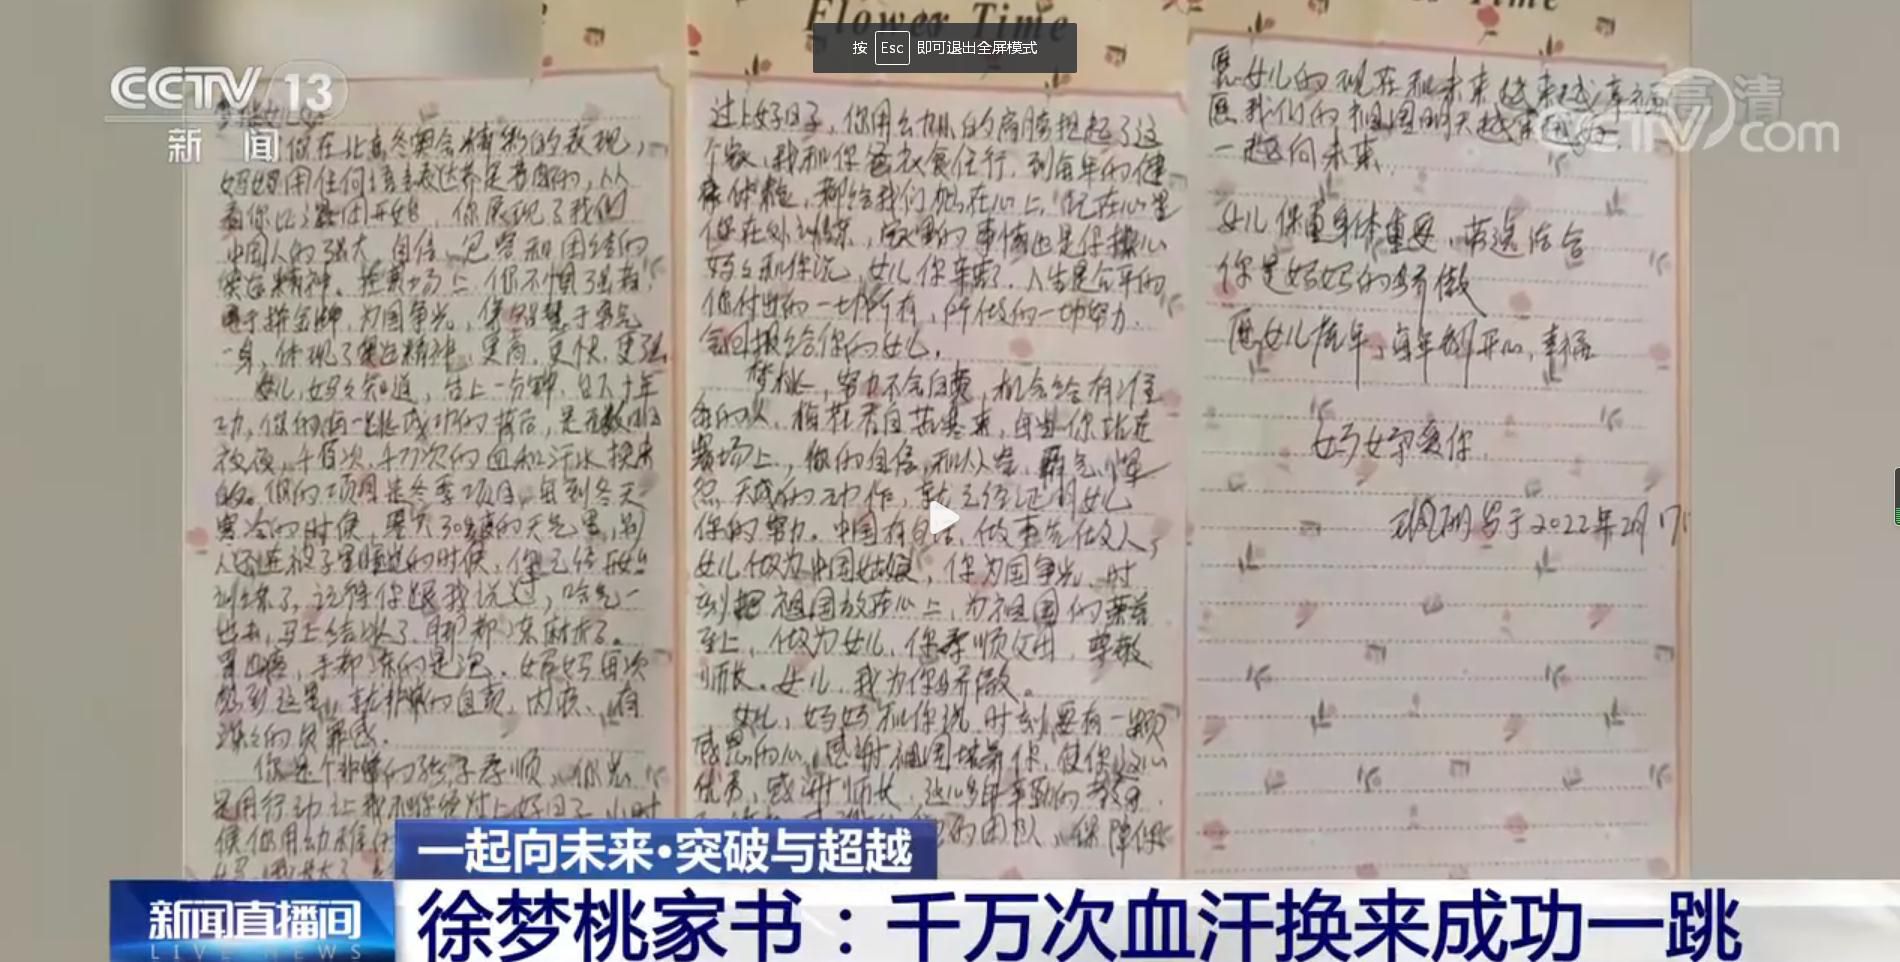 Flower Time
按 Esc 即可退出全屏模式
CCTV 13
新闻
高清
CCTV com
你在北京冬奥会精彩的表现，
妈妈用任何语言表达都是苍白的，从
看你比赛开始，你展现了我们
中国人的强大、自信、包容和团结的
奥运精神。在赛场上你不惧强敌，
勇于拼金牌，为国争光，集智慧于勇气
一身，体现了奥运精神，更高，更快，更强
女儿，妈妈知道，台上一分钟，台下十年
功，你的每一跳成功的背后，是无数个日
夜夜，千百次，千万次的血和汗水换来
的。你的项目是冬季项目，每到冬天
寒冷的时候，零下30多度的天气里，别
人还在被子里睡觉的时候，你已经开始
训练了，记得你跟我说过，哈气一
出来，马上结冰了，脚都冻麻木了。
冒凹疼，手都冻的是泡。妈妈每次
想到这里，就非常的自责，内疚、有
深深的负罪感。
你是个非常的孩子孝顺
过上好日子，你用幼小的肩膀担起了这
个家，我和你爸衣食住行，到每年的健
康体检，都给我们
你在外训练，家里的事情也是你操心
妈妈和你说，女儿你辛苦了，人生是公平的
你付出的一切所有，所做的一切努力，
会回报给你的女儿。
梦桃，努力不会白费，机会给有准
备的人，梅花香自苦寒来，每当你站在
赛场上，你的自信，和从容，霸气
天成的动作，就已经证明女儿
你的努力。中国有句话，做事先做人，
女儿做为中国姑娘，你为国争光，时
刻把祖国放在心上，为祖国的荣誉
至上，做为女儿，你孝顺父母，尊敬
师长。女儿，我为你骄傲。
女儿，妈妈和你说，时刻要有一颗
感恩的心，感谢祖国培养你，使你这么
优秀，感谢师长，这么多年辛勤的
的团队，保障你
愿女儿的现在和未来越来越幸福
愿我们的祖国明天越来越好
一起向未来。
女儿保重身体重要，劳逸结合
你是妈妈的骄傲
愿女儿虎年，每年都开心，幸福
妈妈爱你
写于2022年2月17
一起向未来·突破与超越
新闻直播间
LIVE NEWS
徐梦桃家书：千万次血汗换来成功一跳